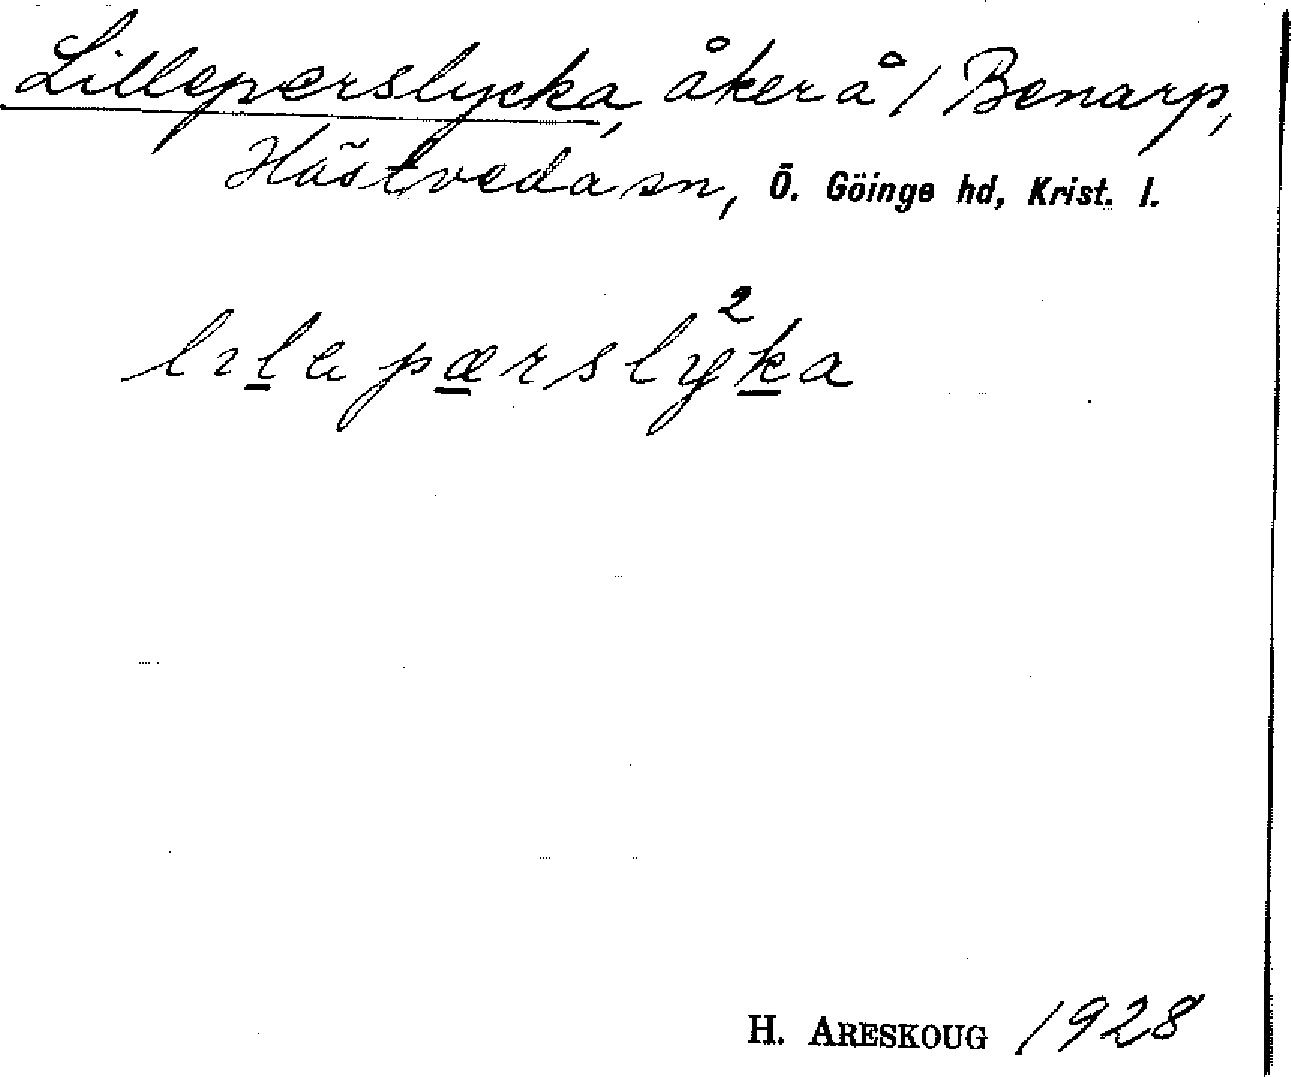 Lilleperslycka, åker å / Benarp,
Hästveda sn, Ö. Göinge hd, Krist. l.
lılapærsly²ka
H. ARESKOUG 1928